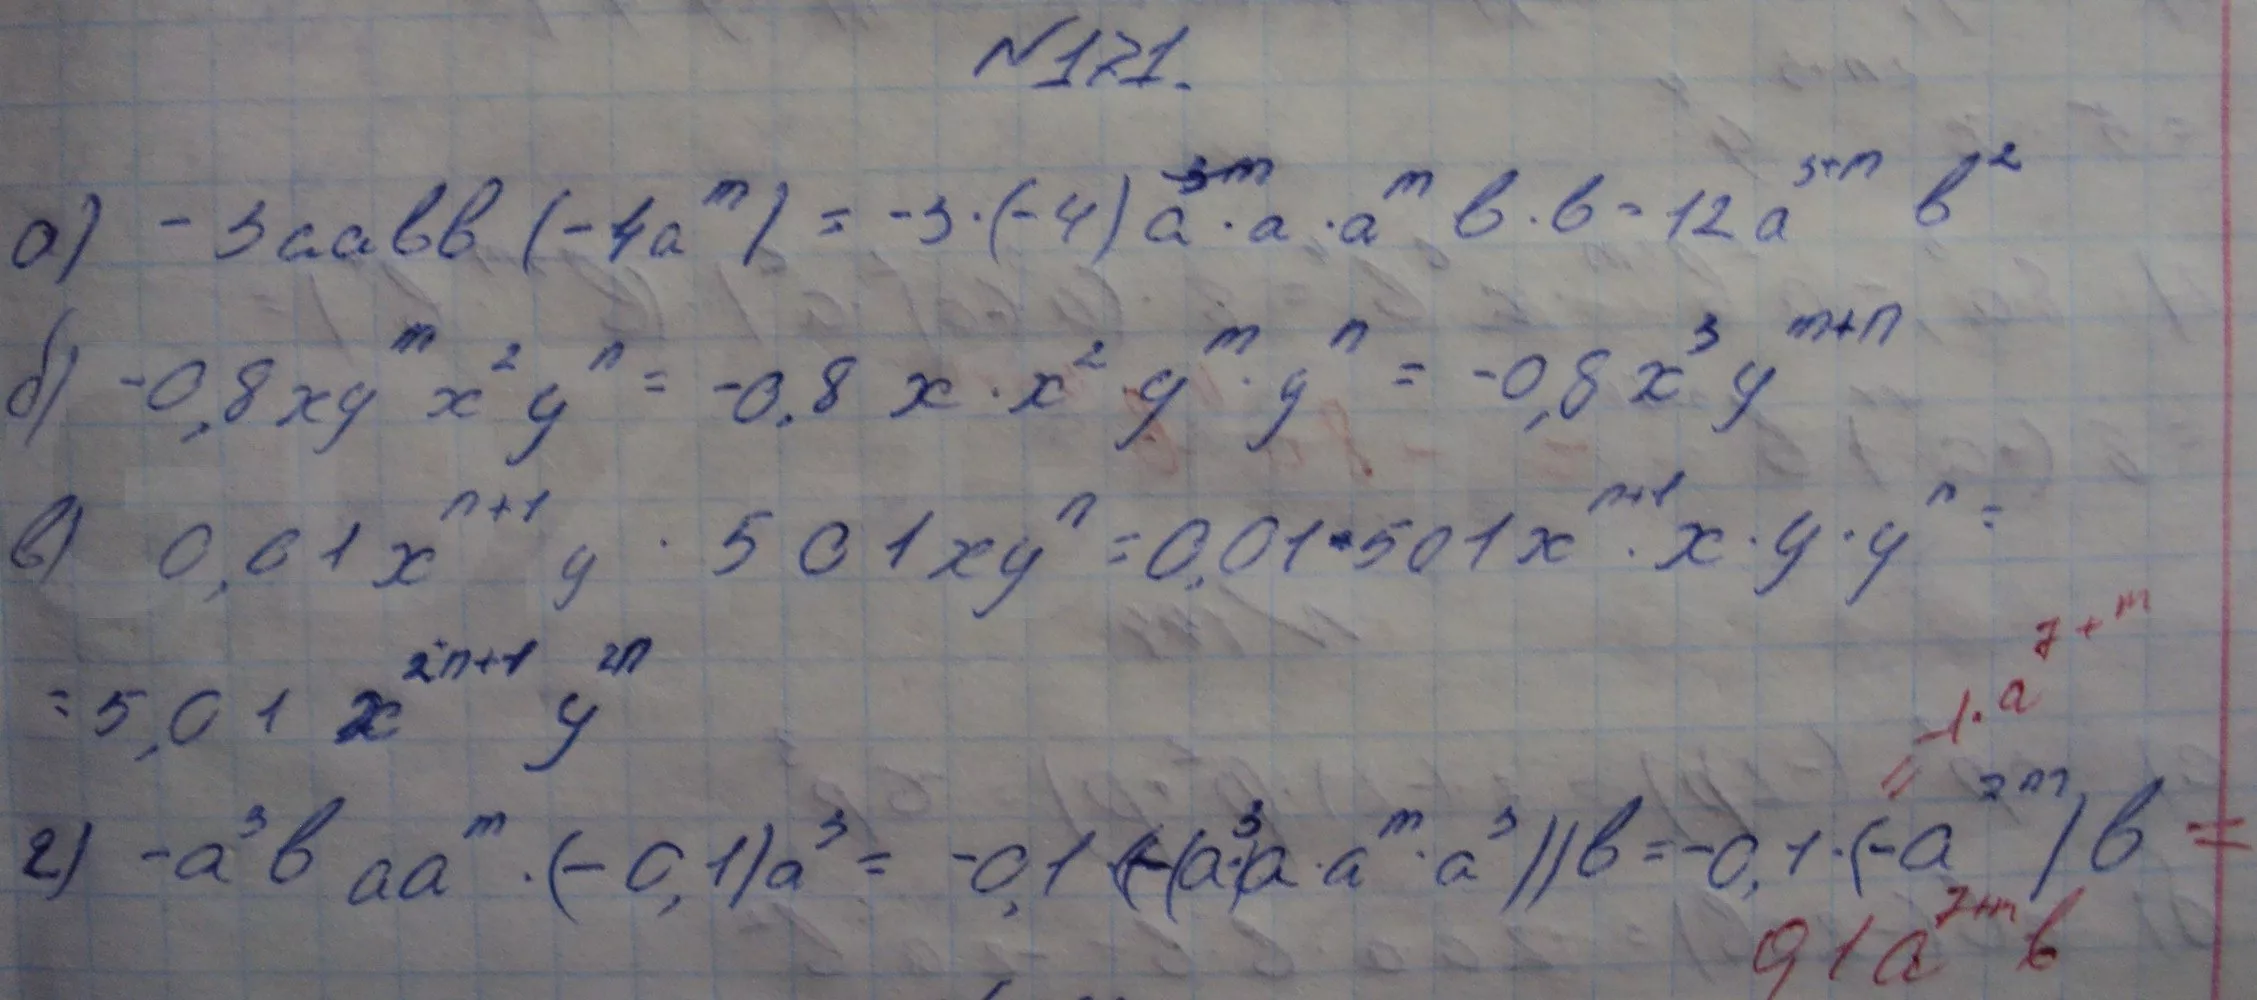 №171.
а) -3aabb(-4aᵐ) = -3·(-4)a³ᵐ·a·aᵐ b·b = 12a³⁺ⁿ b²
б) -0,8xyᵐx²yⁿ = -0,8 x·x²·yᵐ·yⁿ = -0,8x³yᵐ⁺ⁿ
в) 0,01xⁿ⁺¹y · 501xyⁿ = 0,01·501xⁿ⁺¹·x·y·yⁿ =
= 5,01 x²ⁿ⁺¹ y²ⁿ
= -1·a⁷⁺ᵐ
г) -a³b aaᵐ·(-0,1)a³ = -0,1(-(a³·a·aᵐ·a³))b = -0,1·(-a⁷ᵐ)b =
0,1a⁷⁺ᵐb